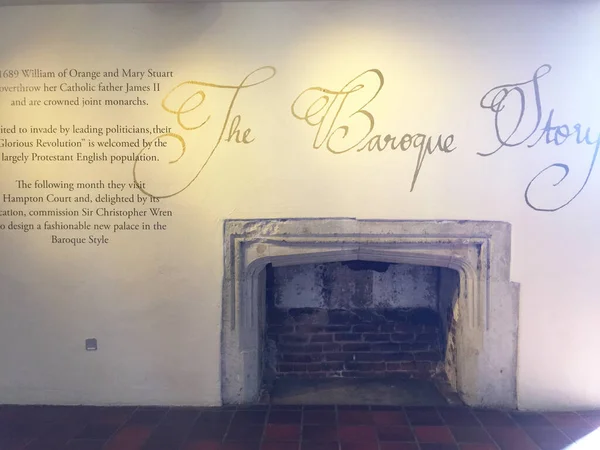 1689 William of Orange and Mary Stuart
overthrow her Catholic father James II
and are crowned joint monarchs.
ited to invade by leading politicians, their
Glorious Revolution" is welcomed by the
largely Protestant English population.
The following month they visit
Hampton Court and, delighted by its
cation, commission Sir Christopher Wren
o design a fashionable new palace in the
Baroque Style
The Baroque Story